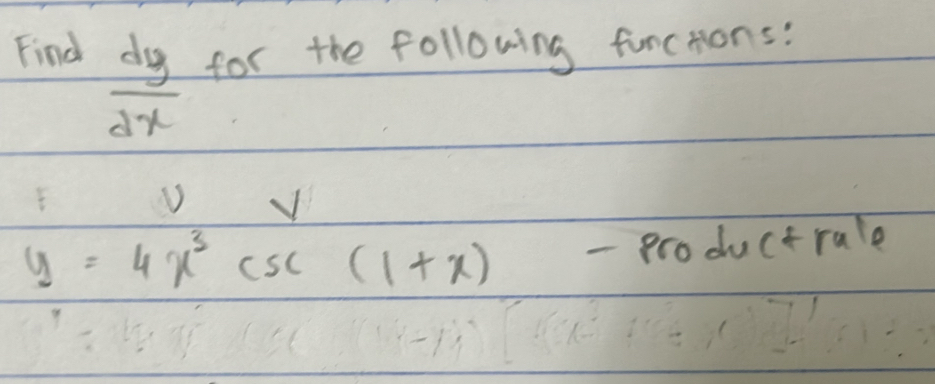 Find dy for the following functions:
dx
U V
y = 4x³ csc (1+x) - Product rule